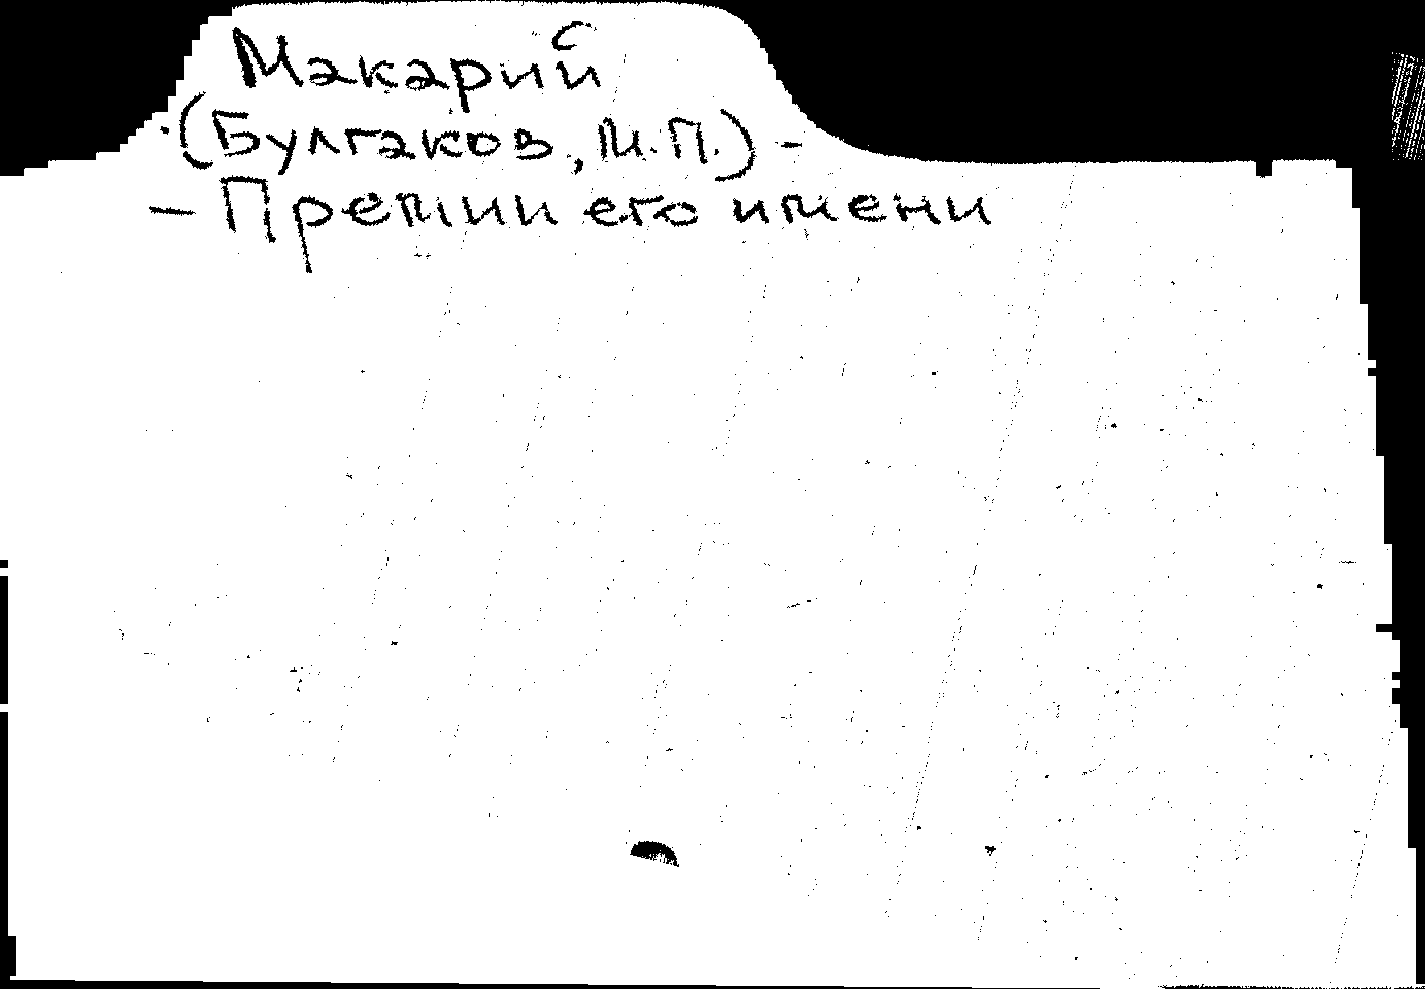 Макарий
(Булгаков, М.П.) -
- Премии его имени